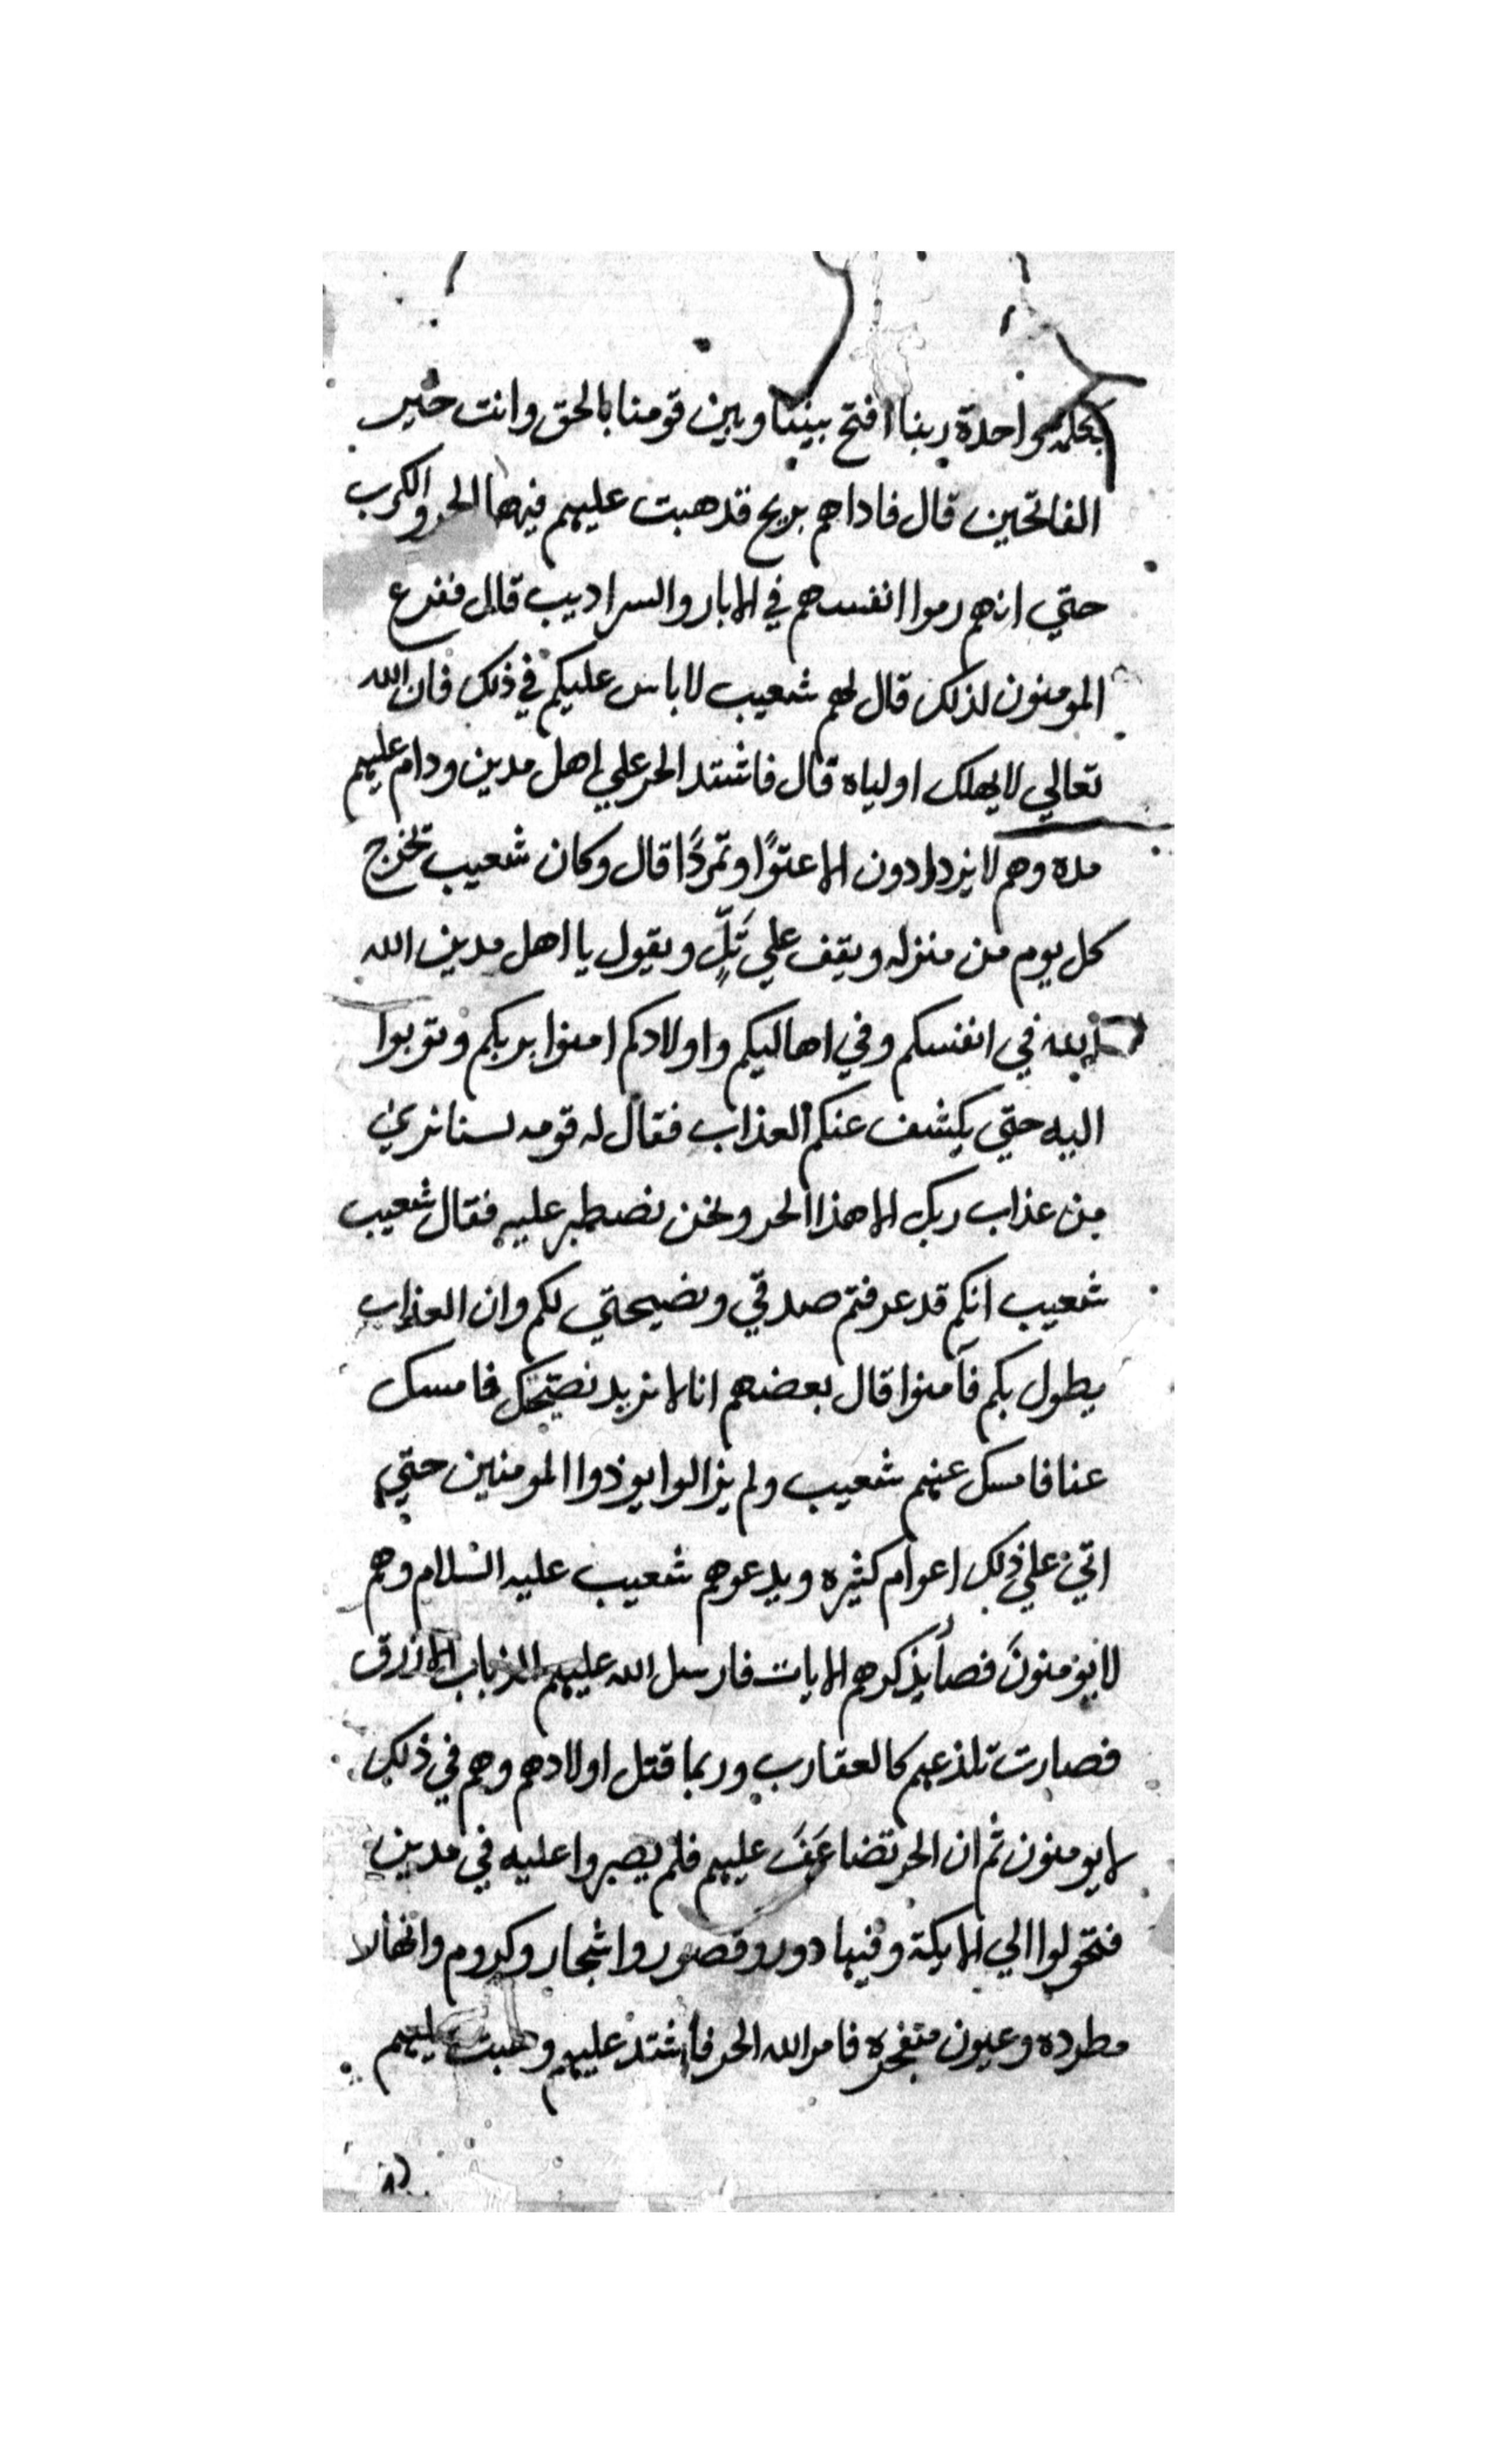 بكلمة واحدة ربنا افتح بيننا وبين قومنا بالحق وانت خير
الفاتحين قال فاداهم بريح قد هبت عليهم فيها الحر والكرب
حتي انهم رموا انفسهم في الابار والسراديب قال ففزع
المومنون لذلك قال لهم شعيب لا باس عليكم في ذلك فان الله
تعالي لا يهلك اولياه قال فاشتد الحر علي اهل مدين ودام عليهم
مده وهم لا يزدادون الا عتوًا وتمردًا قال وكان شعيب تخرج
كل يوم من منزله ويقف علي تَلٍّ ويقول يا اهل مدين الله
الله في انفسكم وفي اهاليكم واولادكم امنوا بربكم وتوبوا
اليه حتي يكشف عنكم العذاب فقال له قومه لسنا نري
من عذاب ربك الا هذا الحر ونحن نصطبر عليه فقال شعيب
شعيب انكم قد عرفتم صدقي ونصيحتي لكم وان العذاب
يطول بكم فآمنوا قال بعضهم انا لا نريد نصيحتك فامسك
عنا فامسك عنهم شعيب ولم يزالوا يوذوا المومنين حتي
اتي علي ذلك اعوام كثيره ويدعوهم شعيب عليه السلام وهم
لا يؤمنونَ فصار يذكرهم الايات فارسل الله عليهم الذباب الازرق
فصارت تلذعهم كالعقارب وربما قتل اولادهم وهم في ذلك
لا يومنون ثم ان الحر تضاعَفَ عليهم فلم يصبروا عليه في مدين
فتحولوا الي الايكة وفيها دور وقصور واشجار وكروم وانهالا
مطرده وعيون متفجره فامر الله الحر فاشتد عليهم وهبت عليهم